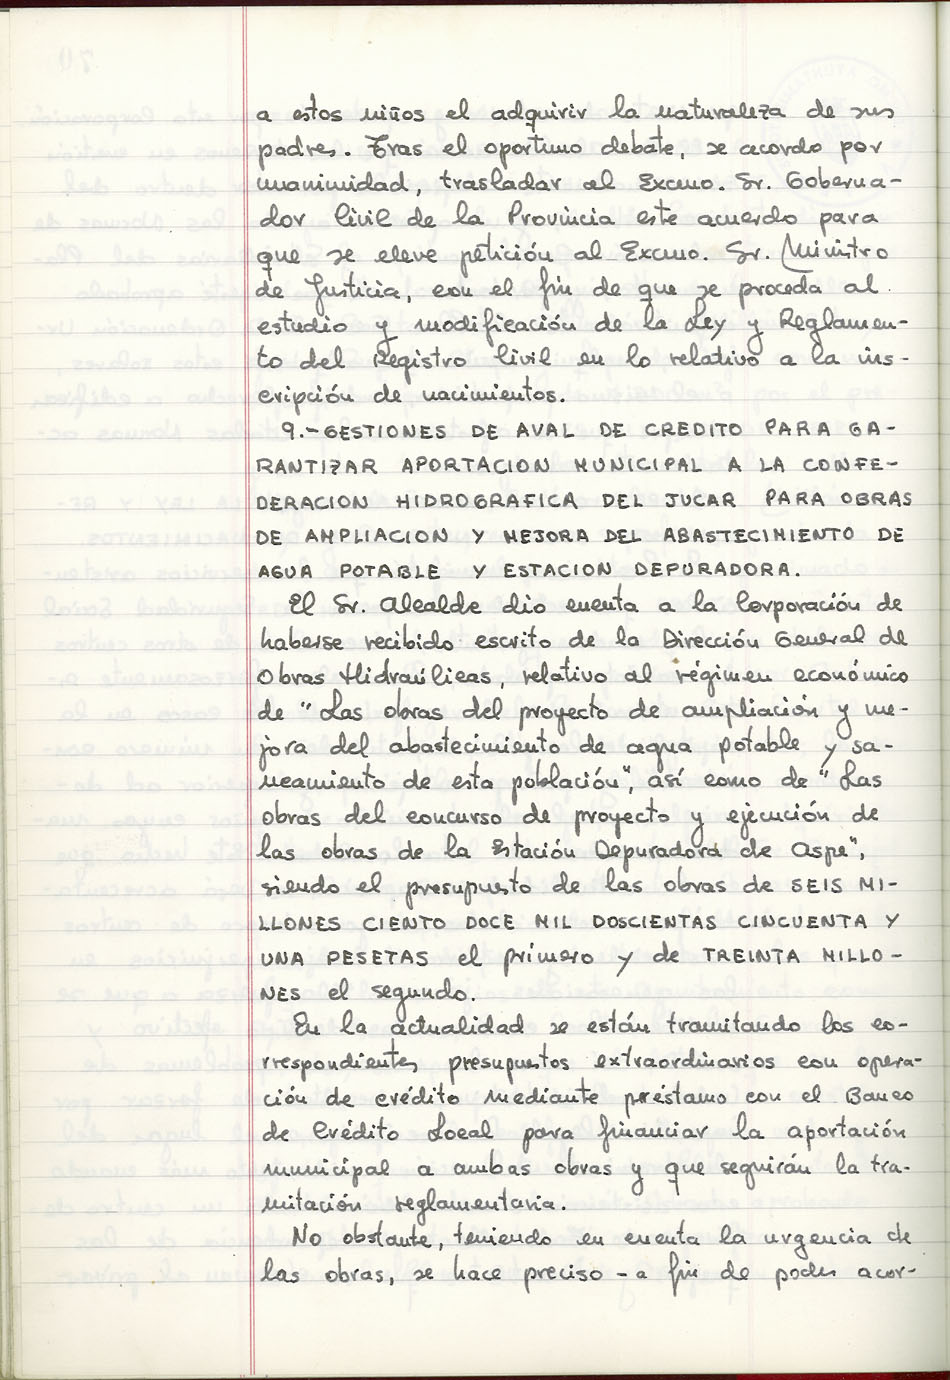 a estos niños el adquirir la naturaleza de sus
padres. Tras el oportuno debate, se acordo por
unanimidad, trasladar al Excmo. Sr. Goberna-
dor Civil de la Provincia este acuerdo para
que se eleve petición al Excmo. Sr. Ministro
de Justicia, con el fin de que se proceda al
estudio y modificación de la Ley y Reglamen-
to del Registro Civil en lo relativo a la ins-
cripción de nacimientos.
9.- GESTIONES DE AVAL DE CREDITO PARA GA-
RANTIZAR APORTACION MUNICIPAL A LA CONFE-
DERACION HIDROGRAFICA DEL JUCAR PARA OBRAS
DE AMPLIACION Y MEJORA DEL ABASTECIMIENTO DE
AGUA POTABLE Y ESTACION DEPURADORA.
El Sr. Alcalde dio cuenta a la Corporación de
haberse recibido escrito de la Dirección General de
Obras Hidraúlicas, relativo al régimen económico
de "Las obras del proyecto de ampliación y me-
jora del abastecimiento de agua potable y sa-
neamiento de esta población", así como de "Las
obras del concurso de proyecto y ejecución de
las obras de la Estación Depuradora de Aspe",
siendo el presupuesto de las obras de SEIS MI-
LLONES CIENTO DOCE MIL DOSCIENTAS CINCUENTA Y
UNA PESETAS el primero y de TREINTA MILLO-
NES el segundo.
En la actualidad se están tramitando los co-
rrespondientes presupuestos extraordinarios con opera-
ción de crédito mediante préstamo con el Banco
de Crédito Local para financiar la aportación
municipal a ambas obras y que seguirán la tra-
mitación reglamentaria.
No obstante, teniendo en cuenta la urgencia de
las obras, se hace preciso - a fin de poder acor-